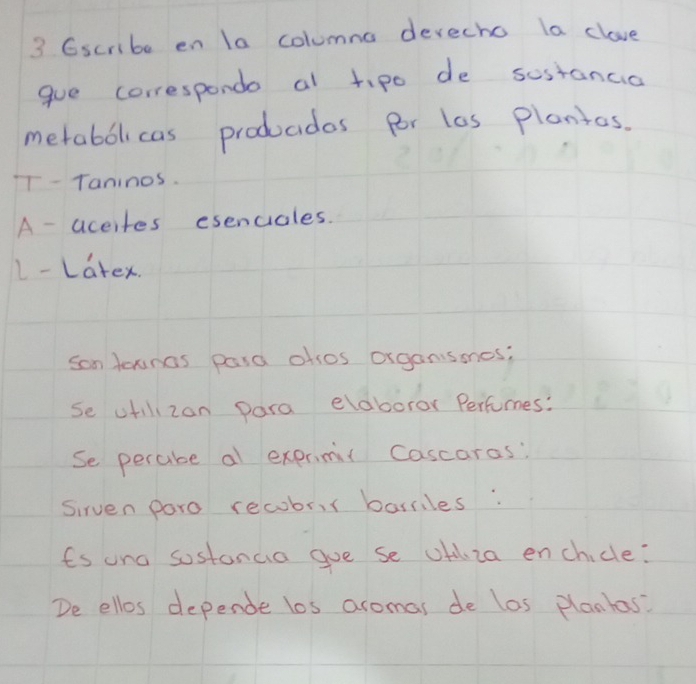 3 Escribe en la columna derecha la clave
que corresponda al tipo de sustancia
metabólicas producidas por las plantas.
T - Taninos.
A - aceites esenciales.
L - Látex.
Son toxinas para otros organismos:
Se utilizan para elaborar Perfumes:
Se percibe al exprimir Cascaras:
Sirven para recubrir barriles:
Es una sustancia que se utiliza en chicle:
De ellos depende los aromas de las plantas: